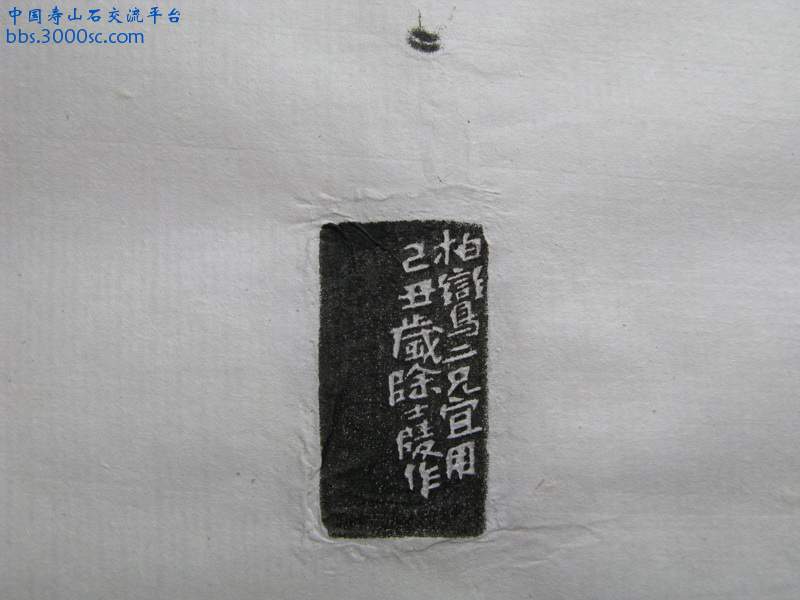 中国寿山石交流平台
bbs.3000sc.com
柏鸞二兄宜用
己丑歲除士陵作